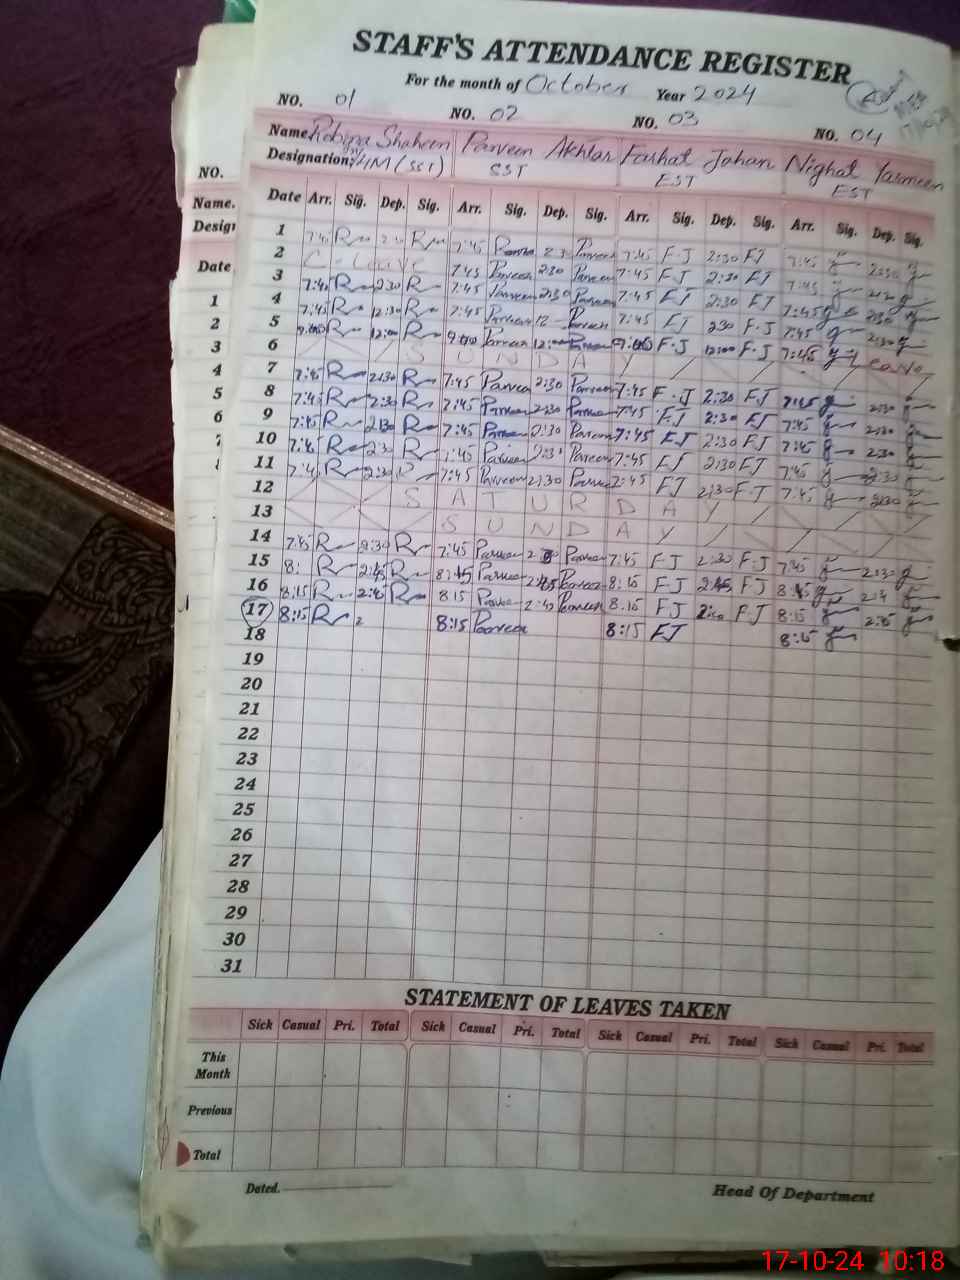 STAFF'S ATTENDANCE REGISTER
For the month of October Year 2024
NO. 01 NO. 02 NO. 03 NO. 04
Name Robina Shaheen Parveen Akhtar Farhat Jahan Nighat Yasmeen
Designation HM (SST) SST EST EST
Date Arr. Sig. Dep. Sig. Arr. Sig. Dep. Sig. Arr. Sig. Dep. Sig. Arr. Sig. Dep. Sig.
NO.
Name.
Desig
Date
1
2
3
4
5
6
1 7:45 Parveen 2:30 Parveen 7:45 F.J 2:30 FJ 7:45 2:30
2 C. leave 7:45 Parveen 2:30 Parveen 7:45 FJ 2:30 FJ 7:45
3 7:45 R 2:30 R 7:45 Parveen 2:30 Parveen 7:45 FJ 2:30 FJ 7:45 2:30
4 7:45 R 12:30 R 7:45 Parveen 12 Parveen 7:45 FJ 230 F.J 7:45 2:30
5 R 12:00 R Parveen 12:00 Parveen F.J 12:00 F.J 7:45 leave
6 SUNDAY
7 7:45 R 2:30 R 7:45 Parveen 2:30 Parveen 7:45 F.J 2:30 FJ 7:45 2:30
8 7:45 R 2:30 R 7:45 Parveen 2:30 Parveen 7:45 FJ 2:30 FJ 7:45 2:30
9 7:45 R 2:30 R 7:45 Parveen 2:30 Parveen 7:45 FJ 2:30 FJ 7:45 2:30
10 7:45 R R 7:45 Parveen 2:30 Parveen 7:45 FJ 2:30 FJ 7:45 2:30
11 7:45 R 2:30 7:45 Parveen 2:30 Parveen FJ 2:30 F.J 7:45 2:30
12 SATURDAY
13 SUNDAY
14 7:45 R 2:30 R 7:45 Parveen Parveen 7:45 FJ 2:30 F.J 7:45 2:30
15 8: R 2:45 R 8:15 Parveen 2:45 Parveen 8:15 FJ 2:45 FJ
16 8:15 R 2:45 R 8:15 Parveen Parveen 8:15 FJ F.J 8:15
17 8:15 R 2 8:15 Parveen 8:15 FJ 8:15
18
19
20
21
22
23
24
25
26
27
28
29
30
31
STATEMENT OF LEAVES TAKEN
Sick Casual Pri. Total Sick Casual Pri. Total Sick Casual Pri. Total Sick Casual Pri. Total
This Month
Previous
Total
Dated.
Head Of Department
17-10-24 10:18